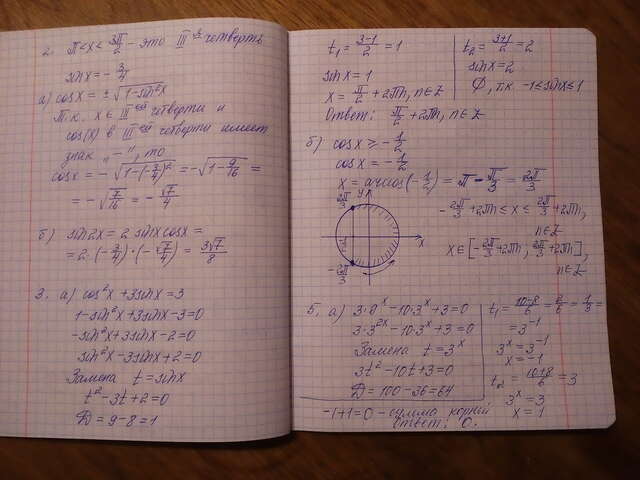 2. π<x<3π/2 - это III ей четверть
sinx = -3/4
а) cosx = ±√(1-sin²x)
Т.к. x ∈ III ей четверти и
cos(x) в III ей четверти имеет
знак „-", то
cosx = -√(1-(-3/4)²) = -√(1-9/16) =
= -√(7/16) = -√7/4
б) sin2x = 2 sinx cosx =
= 2·(-3/4)·(-√7/4) = 3√7/8
3. а) cos²x + 3sinx = 3
1-sin²x+3sinx-3=0
-sin²x+3sinx-2=0
sin²x-3sinx+2=0
Замена t = sinx
t²-3t+2=0
D = 9-8 = 1
t₁ = (3-1)/2 = 1
sinx = 1
x = π/2 + 2πn, n∈Z
t₂ = (3+1)/2 = 2
sinx = 2
∅, т.к. -1≤sinx≤1
Ответ: π/2 + 2πn, n∈Z
б) cosx ≥ -1/2
cosx = -1/2
x = arccos(-1/2) = π - π/3 = 2π/3
2π/3
y
x
-1/2
-2π/3
-2π/3+2πn ≤ x ≤ 2π/3+2πn,
n∈Z
x∈[-2π/3+2πn, 2π/3+2πn],
n∈Z
5. а) 3·9ˣ-10·3ˣ+3=0
3·3²ˣ-10·3ˣ+3=0
Замена t=3ˣ
3t²-10t+3=0
D = 100-36=64
t₁ = (10-8)/6 = 2/6 = 1/3 =
= 3⁻¹
3ˣ = 3⁻¹
x = -1
t₂ = (10+8)/6 = 3
3ˣ = 3
x = 1
-1+1=0 - сумма корней
Ответ: 0.